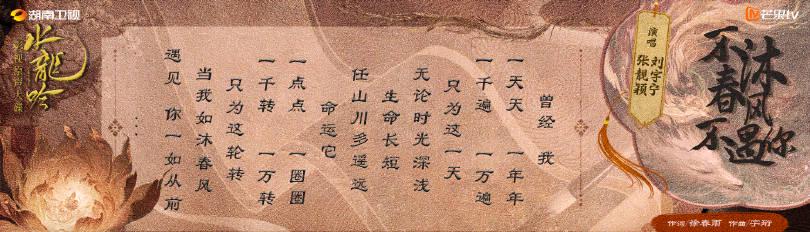 湖南卫视
芒果tv
不沐春风不遇你
演唱
刘宇宁
张靓颖
曾经 我
一天天 一年年
一千遍 一万遍
只为这一天
无论时光深浅
生命长短
任山川多遥远
命运它
一点点 一圈圈
一千转 一万转
只为这轮转
当我如沐春风
遇见 你一如从前
水龍吟
影视原声大碟
作词/徐春雨 作曲/宇珩